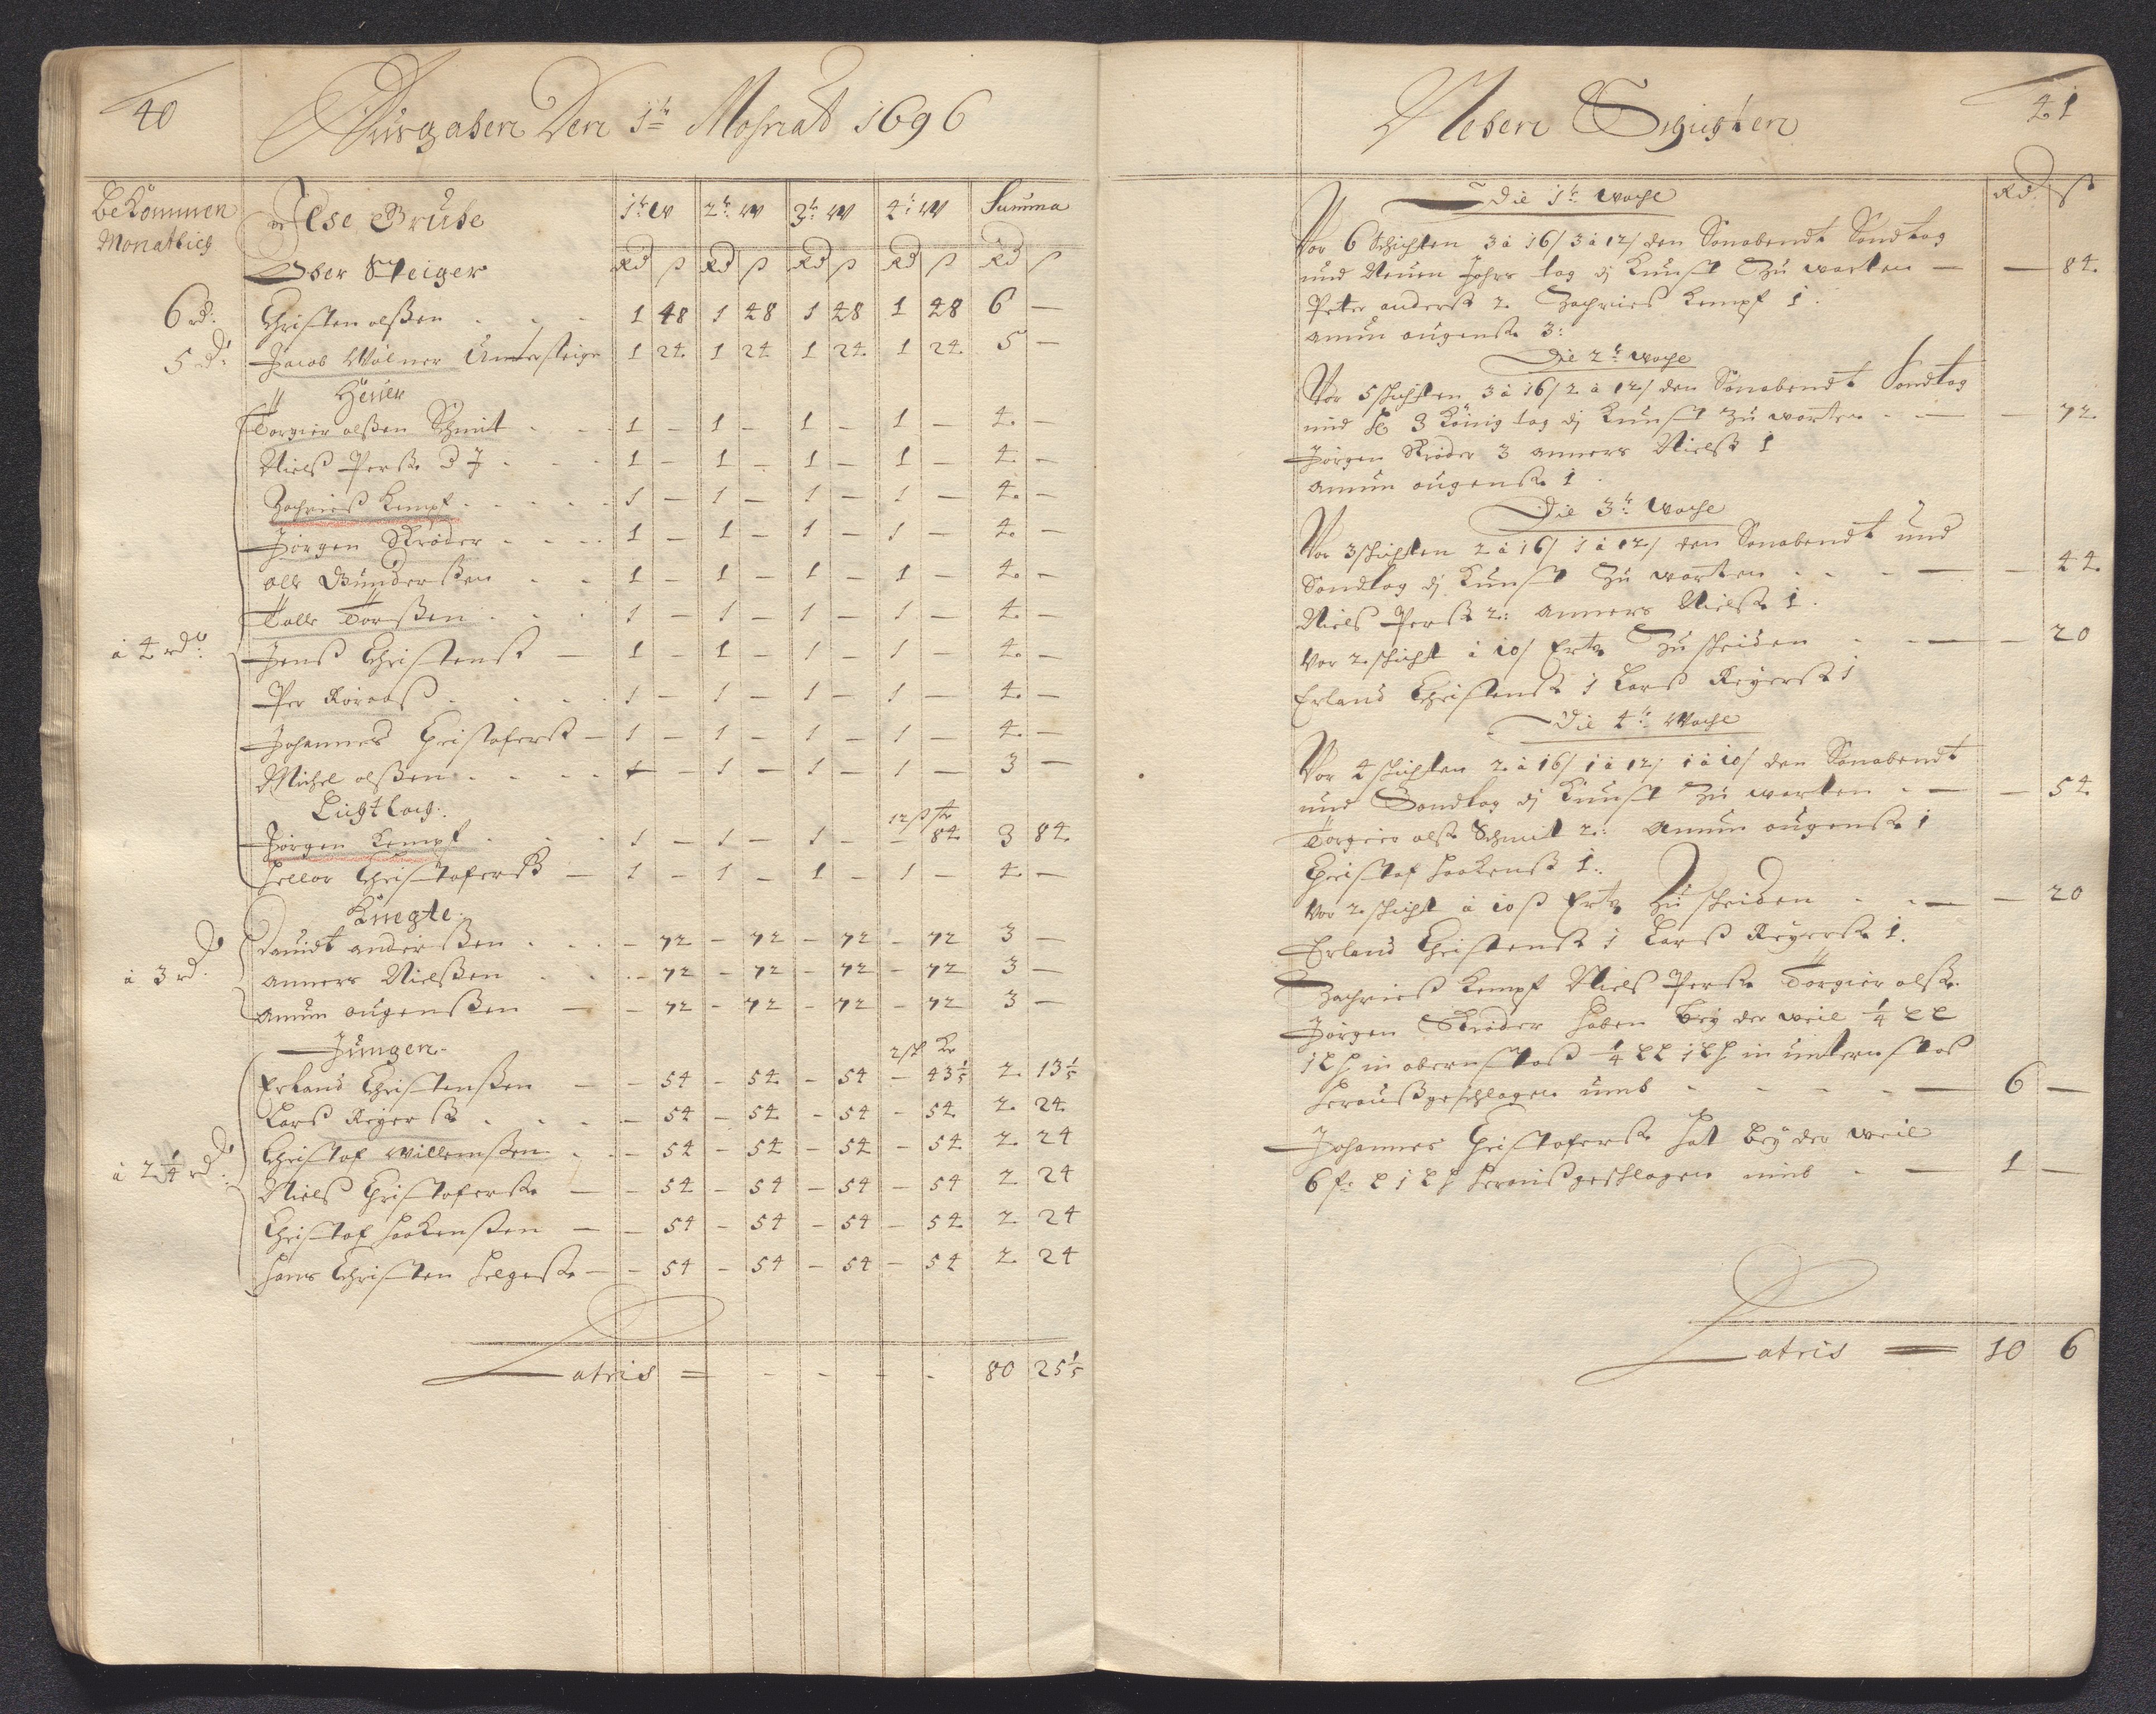 40
Ausgaben Den 1te Mohnat 1696
Bekommen Monatlich
Ilse Grube
1te W 2te W 3te W 4te W Summa
Ober Steiger
Rd ß Rd ß Rd ß Rd ß Rd ß
6 rd: Christen olßen - - - 1 48 1 48 1 48 1 48 6 —
5 rd: Jacob Wölner Untersteiger 1 24 1 24 1 24 1 24 5 —
Heüer
Torgier olßen Schmit - - 1 — 1 — 1 — 1 — 4 —
Nielß Perß. D J - - - 1 — 1 — 1 — 1 — 4 —
Zachrieß Kempf - - - - 1 — 1 — 1 — 1 — 4 —
Jörgen Ströder - - - 1 — 1 — 1 — 1 — 4 —
olle Gunderßen - - 1 — 1 — 1 — 1 — 4 —
Tolle Torßen - - - 1 — 1 — 1 — 1 — 4 —
à 4 rd: Jenß Christenß — 1 — 1 — 1 — 1 — 4 —
Per Röraaß - - - - 1 — 1 — 1 — 1 — 4 —
Johannes Christoferß — 1 — 1 — 1 — 1 — 4 —
Michel olßen - - - - — — 1 — 1 — 1 — 3 —
Lichtloch:
12 ß
Jörgen Kempf - - - 1 — 1 — 1 — — 84 3 84
Hellor Christoferß — 1 — 1 — 1 — 1 — 4 —
Knegte:
Dauidt anderßen - - - — 72 — 72 — 72 — 72 3 —
à 3 rd: anners Nielßen - - - — 72 — 72 — 72 — 72 3 —
amun augenßen — — 72 — 72 — 72 — 72 3 —
Jungen
2 sch Kr
Erland Christenßen — — 54 — 54 — 54 — 43 1/5 2 13 1/5
Larß Reyerß - - - — 54 — 54 — 54 — 54 2 24
à 2 1/4 rd: Christof Willemßen - - — 54 — 54 — 54 — 54 2 24
Nielß Christoferß — — 54 — 54 — 54 — 54 2 24
Christof Haakenßen — — 54 — 54 — 54 — 54 2 24
Hans Christen Helgeß — — 54 — 54 — 54 — 54 2 24
Latris = - - - - 80 25 1/5
Neben Schigten
41
Rd. ß
Die 1te woche
Vor 6 Schichten 3 à 16/ 3 à 12/ den Sonabendt Sondtag
und Neuen Jahrs tag di Kunst Zu warten — — 84
Peter anderß 2. Zachrieß Kempf 1.
amun augenß. 3:
Die 2te woche
Vor 5 schichten 3 à 16/ 2 à 12/ den Sonabendt Sondtag
und H. 3 König tag di Kunst zu warten - — — 72
Jörgen Ströder 3 anners Nielß 1
amun augenß. 1
Die 3te Woche
Vor 3 schichten 2 à 16/ 1 à 12/ den Sonabendt und
Sondtag di Kunst Zu warten - - - — — 44
Nielß Perß 2: anners Nielß. 1.
Vor 2 schicht à 10/ Ertz Zu scheiden - - — — 20
Erland Christenß 1 Larß Reyerß 1
Die 4te Woche
Vor 4 schichten 2 à 16/ 1 à 12/ 1 à 10/ den Sonabendt
und Sondtag di Kunst Zu warten - — — 54
Torgier olß. Schmit 2: amun augenß. 1
Christof Haakenß 1.
Vor 2 schicht à 10 ß Ertz Zu scheiden - - — — 20
Erland Christenß 1 Larß Reyerß. 1.
Zachrieß Kempf Nielß Perß. Torgier olß.
Jörgen Ströder haben bey der weil 1/4
in obernstoß 1/4 in unternstoß
heraußgeschlagen umb - - - - — 6 —
Johannes Christoferß hat bey der weil
6 heraußgeschlagen umb - — 1 —
Latris = 10 6